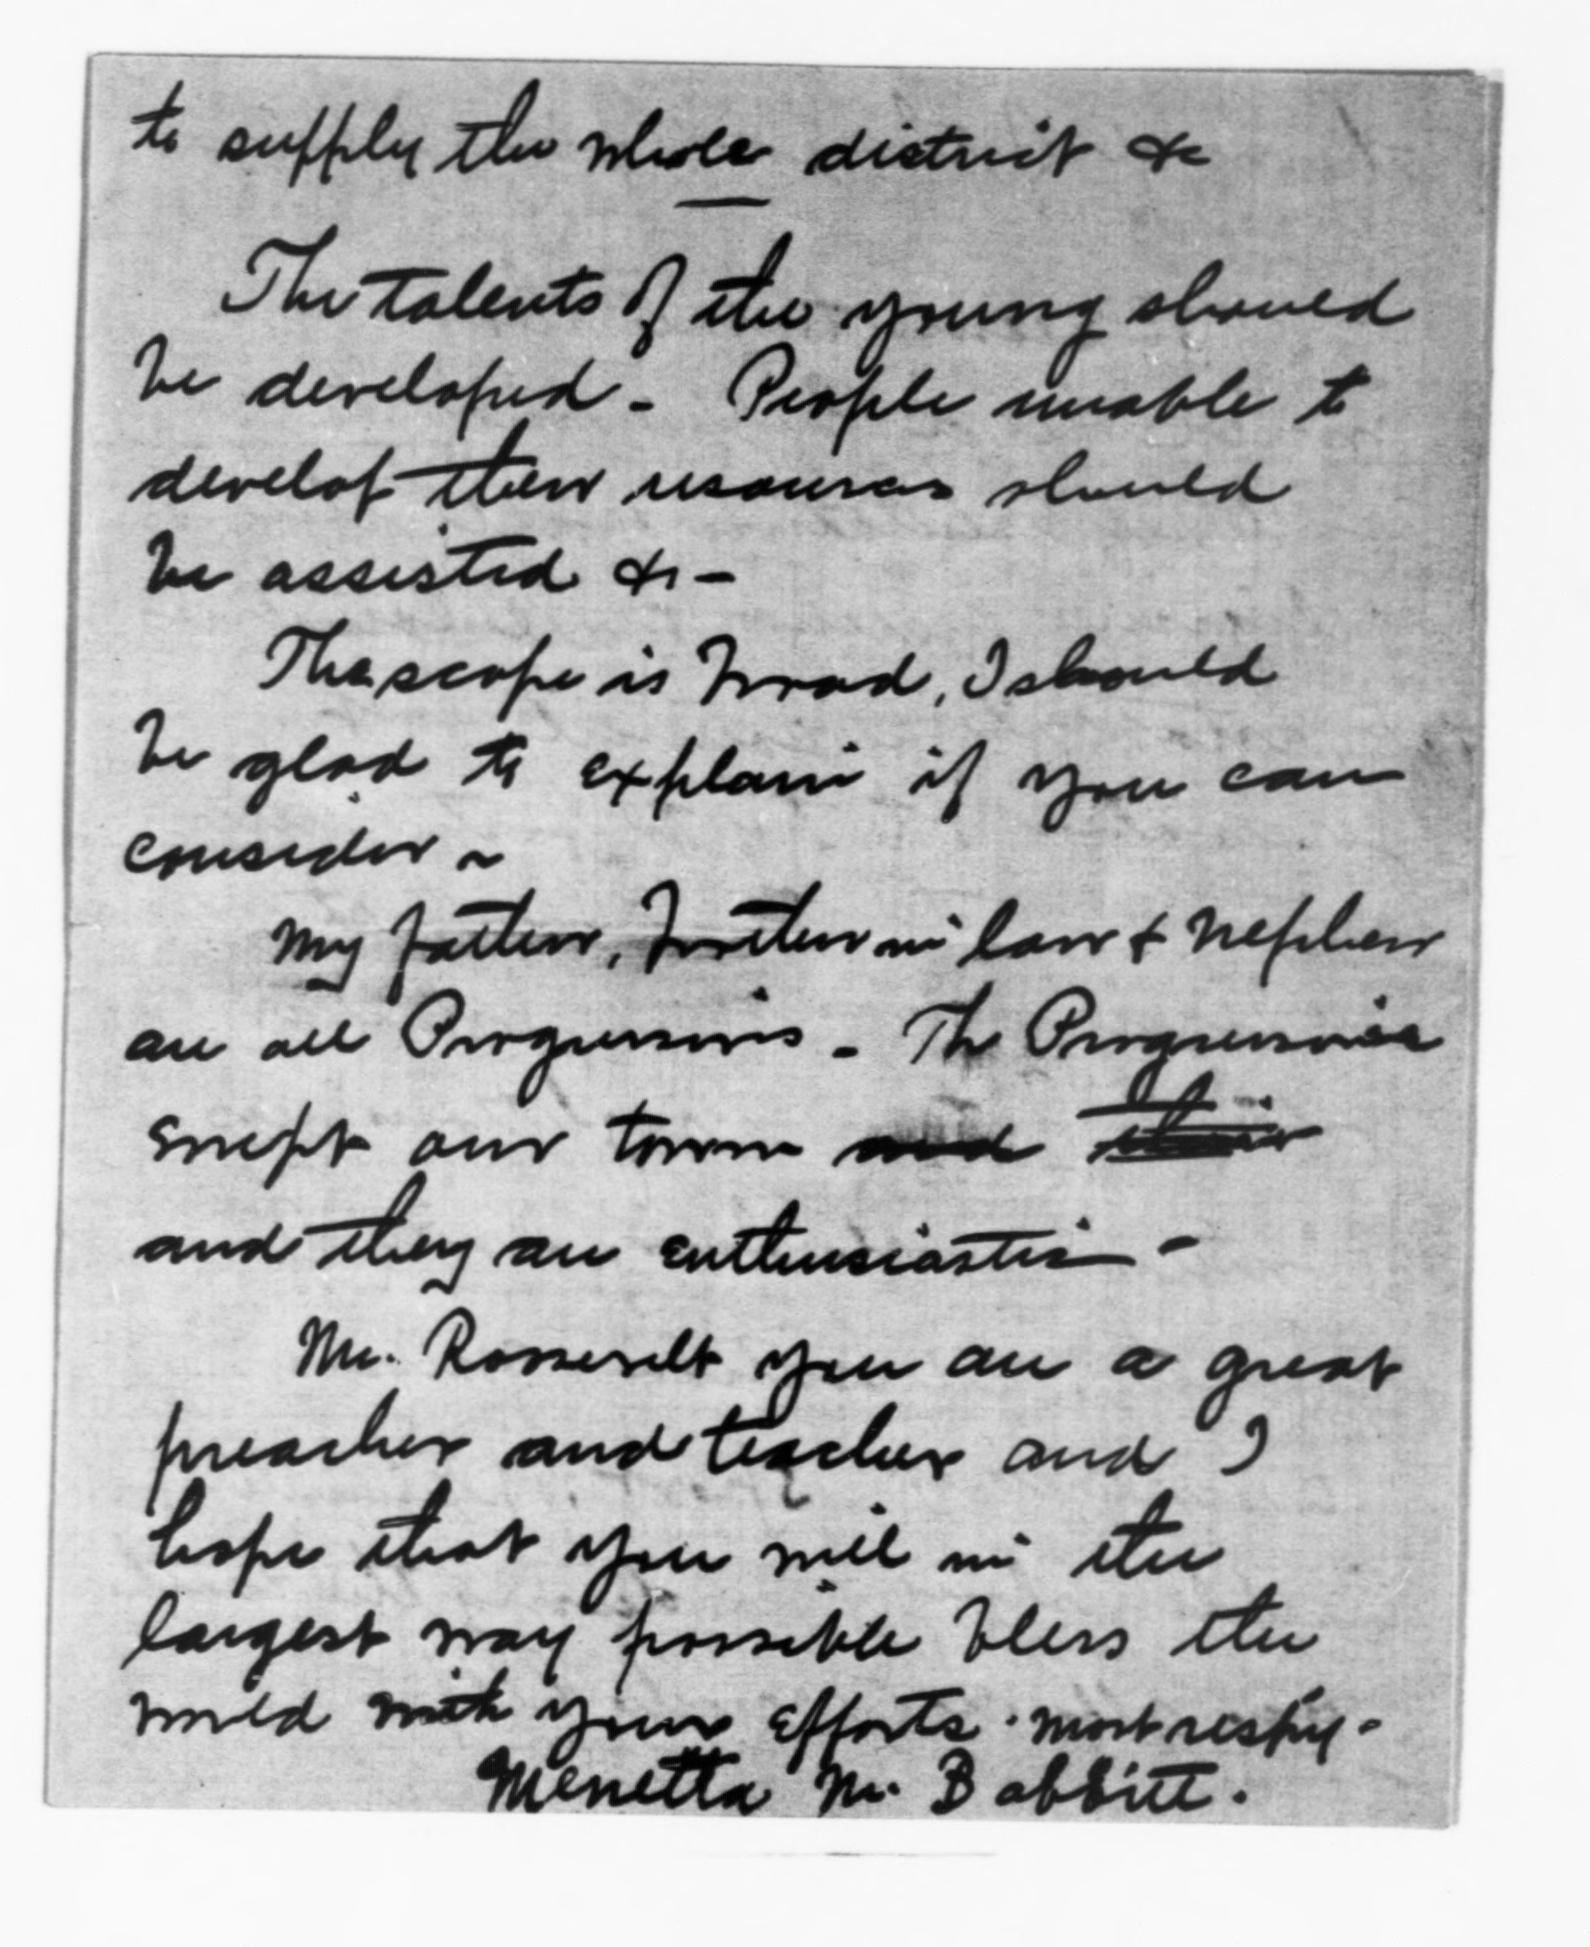 to supply the whole district &c
The talents of the young should
be developed - People unable to
develop their resources should
be assisted &c -
The scope is broad, I should
be glad to explain if you can
consider -
My father, brother in law & nephew
are all Progressives - The Progressives
swept our town and their
and they are enthusiastic -
Mr. Roosevelt you are a great
preacher and teacher and I
hope that you will in the
largest way possible bless the
world with your efforts. most respy -
Menetta M. Babbitt.